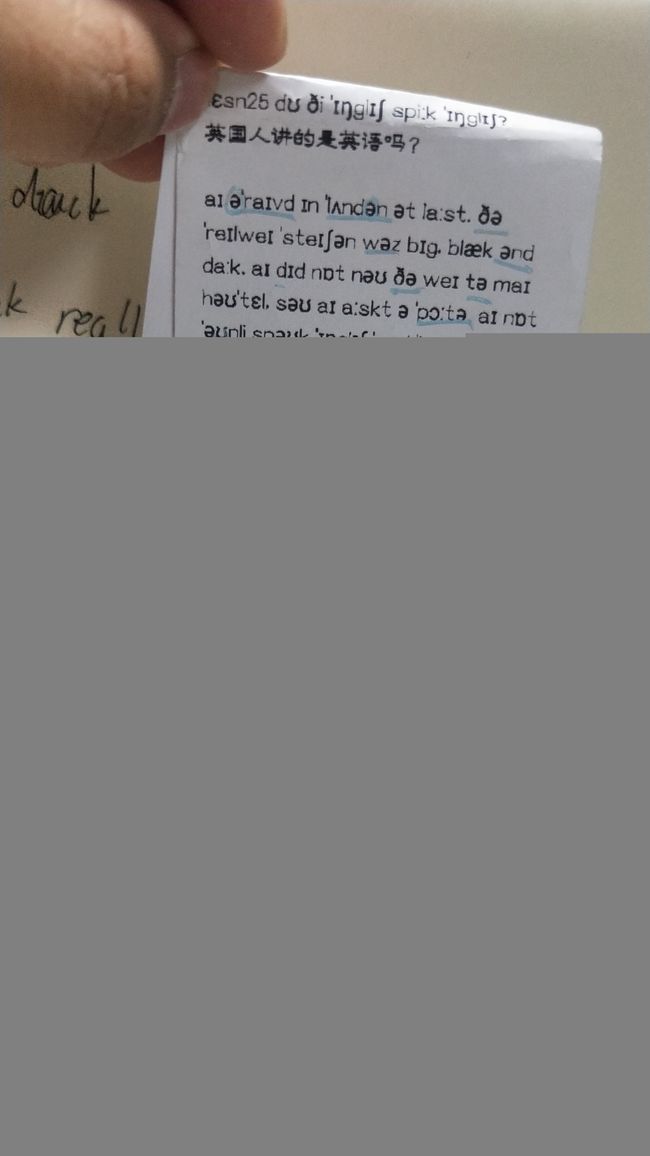 ɛsn25 dʊ ði ˈɪŋglɪʃ spiːk ˈɪŋglɪʃ?
英国人讲的是英语吗？
aɪ əˈraɪvd ɪn ˈlʌndən ət laːst. ðə
ˈreɪlweɪ ˈsteɪʃən wəz bɪg, blæk ənd
daːk. aɪ dɪd nɒt nəʊ ðə weɪ tə maɪ
həʊˈtɛl, səʊ aɪ aːskt ə ˈpɔːtə. aɪ nɒt
ˈəʊnli spəʊk